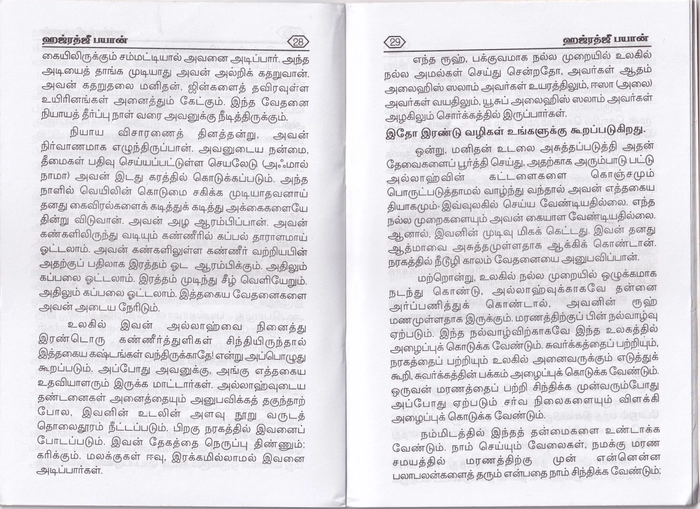 ஹஜ்ரத்ஜீ பயான்
28
கையிலிருக்கும் சம்மட்டியால் அவனை அடிப்பார். அந்த
அடியைத் தாங்க முடியாது அவன் அலறிக் கதறுவான்.
அவன் கதறுதலை மனிதன், ஜின்களைத் தவிரவுள்ள
உயிரினங்கள் அனைத்தும் கேட்கும். இந்த வேதனை
நியாயத் தீர்ப்பு நாள் வரை அவனுக்கு நீடித்திருக்கும்.
நியாய விசாரணைத் தினத்தன்று, அவன்
நிர்வாணமாக எழுந்திருப்பான். அவனுடைய நன்மை,
தீமைகள் பதிவு செய்யப்பட்டுள்ள செயலேடு (அஃமால்
நாமா) அவன் இடது கரத்தில் கொடுக்கப்படும். அந்த
நாளில் வெயிலின் கொடுமை சகிக்க முடியாதவனாய்
தனது கைவிரல்களைக் கடித்துக் கடித்து அக்கைகளையே
தின்று விடுவான். அவன் அழ ஆரம்பிப்பான். அவன்
கண்களிலிருந்து வடியும் கண்ணீரில் கப்பல் தாராளமாய்
ஓட்டலாம். அவன் கண்களிலுள்ள கண்ணீர் வற்றியபின்
அதற்குப் பதிலாக இரத்தம் ஓட ஆரம்பிக்கும். அதிலும்
கப்பலை ஓட்டலாம். இரத்தம் முடிந்து சீழ் வெளியேறும்.
அதிலும் கப்பலை ஓட்டலாம். இத்தகைய வேதனைகளை
அவன் அடைய நேரிடும்.
உலகில் இவன் அல்லாஹ்வை நினைத்து
இரண்டொரு கண்ணீர்த்துளிகள் சிந்தியிருந்தால்
இத்தகைய கஷ்டங்கள் வந்திருக்காதே! என்று அப்பொழுது
கூறப்படும். அப்போது அவனுக்கு, அங்கு எத்தகைய
உதவியாளரும் இருக்க மாட்டார்கள். அல்லாஹ்வுடைய
தண்டனைகள் அனைத்தையும் அனுபவிக்கத் தகுந்தாற்
போல, இவனின் உடலின் அளவு நூறு வருடத்
தொலைதூரம் நீட்டப்படும். பிறகு நரகத்தில் இவனைப்
போடப்படும். இவன் தேகத்தை நெருப்பு தின்னும்:
கரிக்கும். மலக்குகள் ஈவு, இரக்கமில்லாமல் இவனை
அடிப்பார்கள்.
29
ஹஜ்ரத்ஜீ பயான்
எந்த ரூஹ், பக்குவமாக நல்ல முறையில் உலகில்
நல்ல அமல்கள் செய்து சென்றதோ, அவர்கள் ஆதம்
அலைஹிஸ் ஸலாம் அவர்கள் உயரத்திலும், ஈஸா (அலை)
அவர்கள் வயதிலும், யூசுப் அலைஹிஸ் ஸலாம் அவர்கள்
அழகிலும் சொர்க்கத்தில் இருப்பார்கள்.
இதோ இரண்டு வழிகள் உங்களுக்கு கூறப்படுகிறது.
ஒன்று, மனிதன் உடலை அசுத்தப்படுத்தி அதன்
தேவைகளைப் பூர்த்தி செய்து, அதற்காக அரும்பாடு பட்டு
அல்லாஹ்வின் கட்டளைகளை கொஞ்சமும்
பொருட்படுத்தாமல் வாழ்ந்து வந்தால் அவன் எத்தகைய
தியாகமும்- இவ்வுலகில் செய்ய வேண்டியதில்லை. எந்த
நல்ல முறைகளையும் அவன் கையாள வேண்டியதில்லை.
ஆனால், இவனின் முடிவு மிகக் கெட்டது. இவன் தனது
ஆத்மாவை அசுத்தமுள்ளதாக ஆக்கிக் கொண்டான்.
நரகத்தில் நீடூழி காலம் வேதனையை அனுபவிப்பான்.
மற்றொன்று, உலகில் நல்ல முறையில் ஒழுக்கமாக
நடந்து கொண்டு, அல்லாஹ்வுக்காகவே தன்னை
அர்ப்பணித்துக் கொண்டால், அவனின் ரூஹ்
மணமுள்ளதாக இருக்கும். மரணத்திற்குப் பின் நல்வாழ்வு
ஏற்படும். இந்த நல்வாழ்விற்காகவே இந்த உலகத்தில்
அழைப்புக் கொடுக்க வேண்டும். சுவர்க்கத்தைப் பற்றியும்,
நரகத்தைப் பற்றியும் உலகில் அனைவருக்கும் எடுத்துக்
கூறி, சுவர்க்கத்தின் பக்கம் அழைப்புக் கொடுக்க வேண்டும்.
ஒருவன் மரணத்தைப் பற்றி சிந்திக்க முன்வரும்போது
அப்போது ஏற்படும் சர்வ நிலைகளையும் விளக்கி
அழைப்புக் கொடுக்க வேண்டும்.
நம்மிடத்தில் இந்தத் தன்மைகளை உண்டாக்க
வேண்டும். நாம் செய்யும் வேலைகள், நமக்கு மரண
சமயத்தில் மரணத்திற்கு முன் என்னென்ன
பலாபலன்களைத் தரும் என்பதை நாம் சிந்திக்க வேண்டும்;